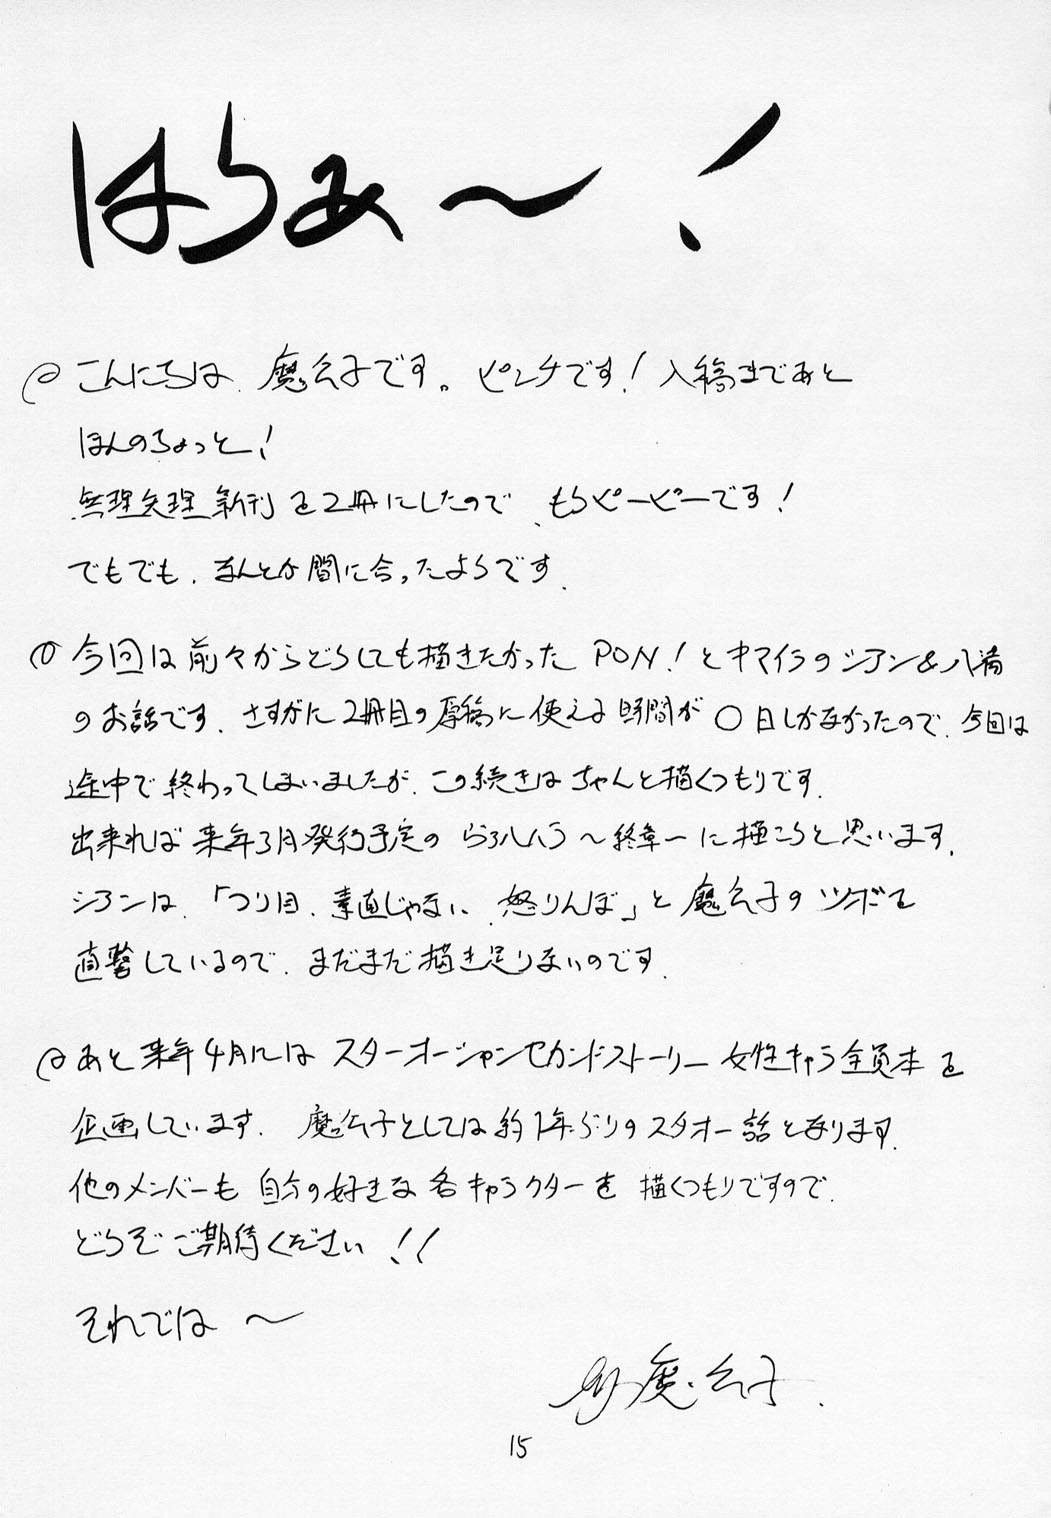 はらあ～!
こんにちは 魔公子です。ピンチです! 入稿まであと
ほんのちょっと!
無理矢理新刊を2冊にしたので、もうピーピーです!
でもでも、なんとか間に合ったようです。
今回は前々からどうしても描きたかった PON!とキマイラのシアン&八満
のお話です。さすがに2冊目の原稿に使える時間が 〇日しかなかったので、今回は
途中で終わってしまいましたが、この続きはちゃんと描くつもりです。
出来れば来年3月発行予定の らぶハハラ～終章～に描こうと思います。
シアンは、「つり目、素直じゃない、怒りんぼ」と魔公子のツボを
直撃しているので、まだまだ描き足りないのです。
あと来年4月には スターオーシャンセカンドストーリー女性キャラ全員本を
企画しています。魔公子としては約1年ぶりのスタオー話となります。
他のメンバーも自分の好きな各キャラクターを描くつもりですので、
どうぞご期待ください!!
それでは～
魔公子.
15